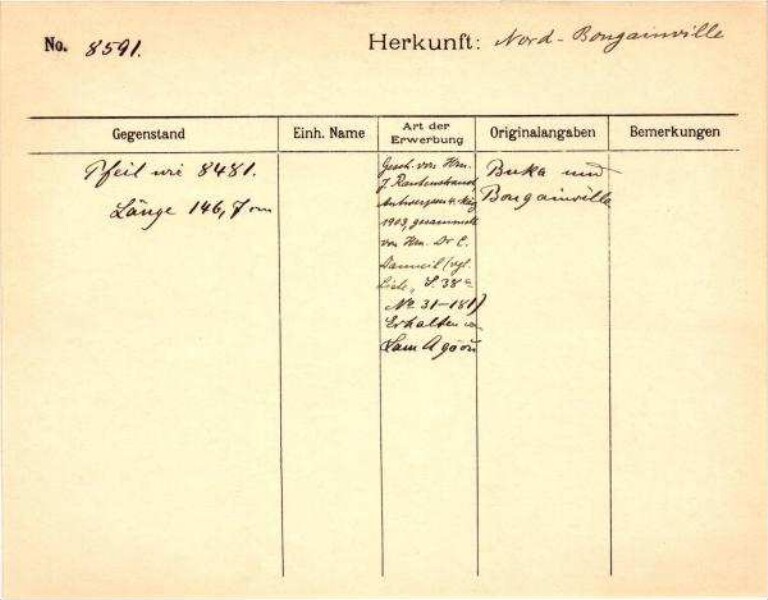 No. 8591.
Herkunft: Nord-Bougainville
Gegenstand
Einh. Name
Art der Erwerbung
Originalangaben
Bemerkungen
Pfeil wie 8481.
Länge 146,7 cm
Gesch. von Hrn.
J. Rautenstrauch,
Antwerpen
1903, gesammelt
von Hrn. Dr C.
(vgl.
Liste, S. 38
No 31–181)
Erhalten
Buka und
Bougainville